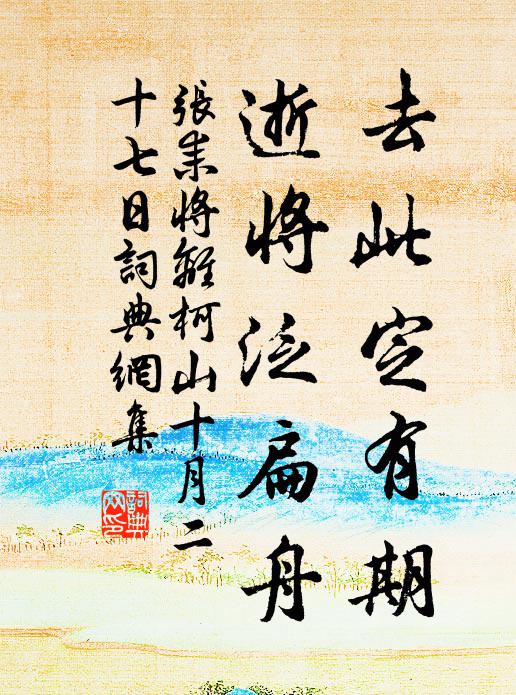 去此定有期
逝将泛扁舟
張耒将離柯山十月二
十七日詞典網集
詞典网印